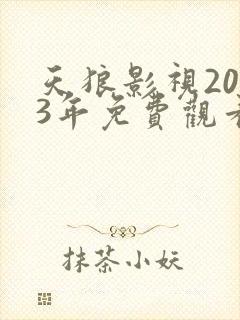 天狼影視20
3年免費觀
抹茶小妖